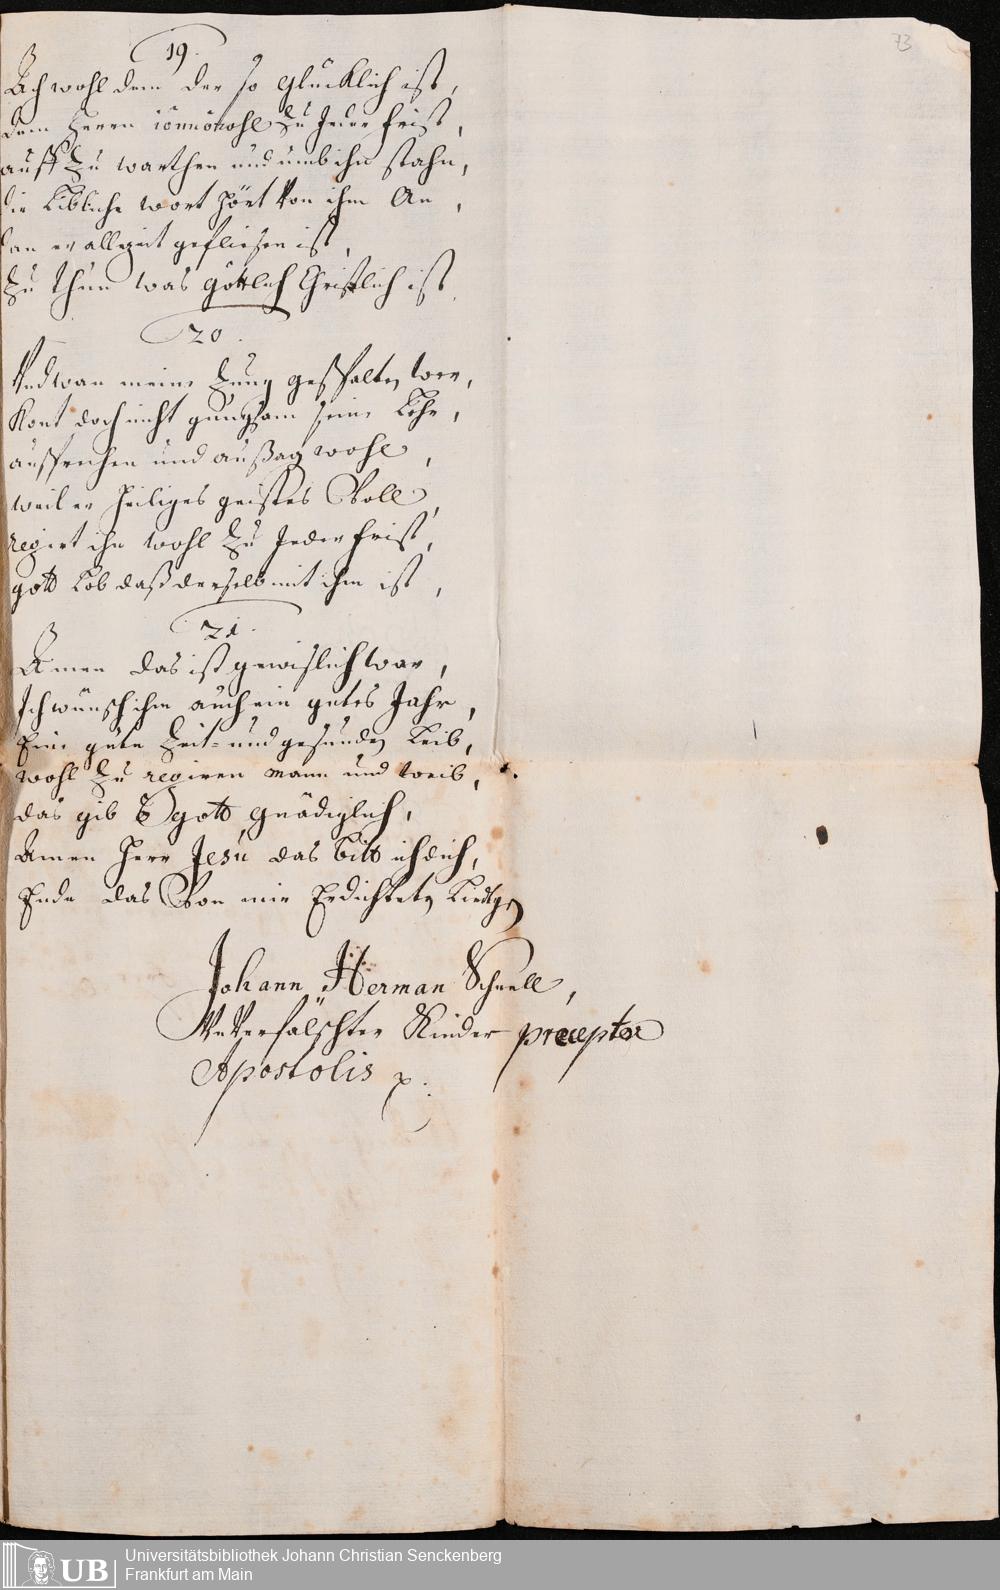 73
19.
Ach wohl dem der so glücklich ist,
dem Herrn zu Jeder frist,
auff zu warthen und umb ihn stahn,
die liebliche wort hört Von ihm An,
dan er allezeit gefliesen ist,
Zu thun was göttlich Christlich ist.
20.
Und wan meine Zung gespalten wer,
Kont doch nicht gnugsam seine Lehr,
aussprechen und außag wohl,
weil er heiliges geistes Voll,
regirt ihn wohl zu Jeder frist,
gott Lob daß derselb mit ihm ist,
21.
Amen das ist gewislich war,
Ich wünsch ihm auch ein gutes Jahr,
Eine gute Zeit- und gesunden Leib,
wohl zu regiren mann und weib,
das gib O gott gnädiglich,
Amen Herr Jesu das bitt ich dich,
Ende das Von mir Erdichteten
Johann Herman Schnell,
UnVerfälschter Kinder preceptor
Apostolis
Universitätsbibliothek Johann Christian Senckenberg
Frankfurt am Main
UB